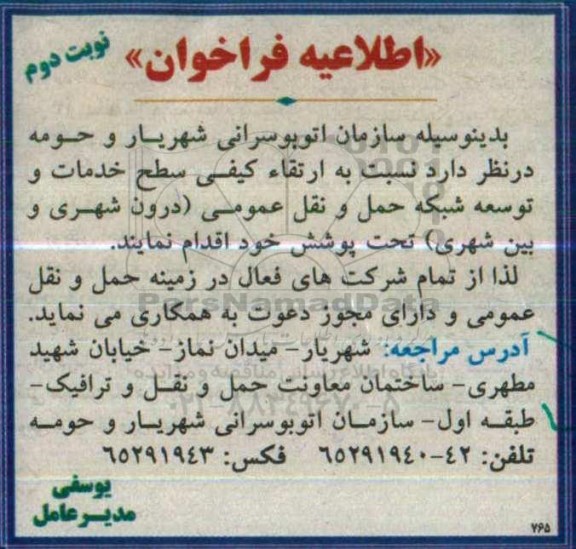 نوبت دوم
«اطلاعیه فراخوان»
بدینوسیله سازمان اتوبوسرانی شهریار و حومه
درنظر دارد نسبت به ارتقاء کیفی سطح خدمات و
توسعه شبکه حمل و نقل عمومی (درون شهری و
بین شهری) تحت پوشش خود اقدام نمایند.
لذا از تمام شرکت های فعال در زمینه حمل و نقل
عمومی و دارای مجوز دعوت به همکاری می نماید.
آدرس مراجعه: شهریار- میدان نماز- خیابان شهید
مطهری- ساختمان معاونت حمل و نقل و ترافیک-
طبقه اول- سازمان اتوبوسرانی شهریار و حومه
تلفن: ۴۲-۶۵۲۹۱۹۴۰ فکس: ۶۵۲۹۱۹۴۳
یوسفی
مدیرعامل
۷۶۵
ParsNamadData